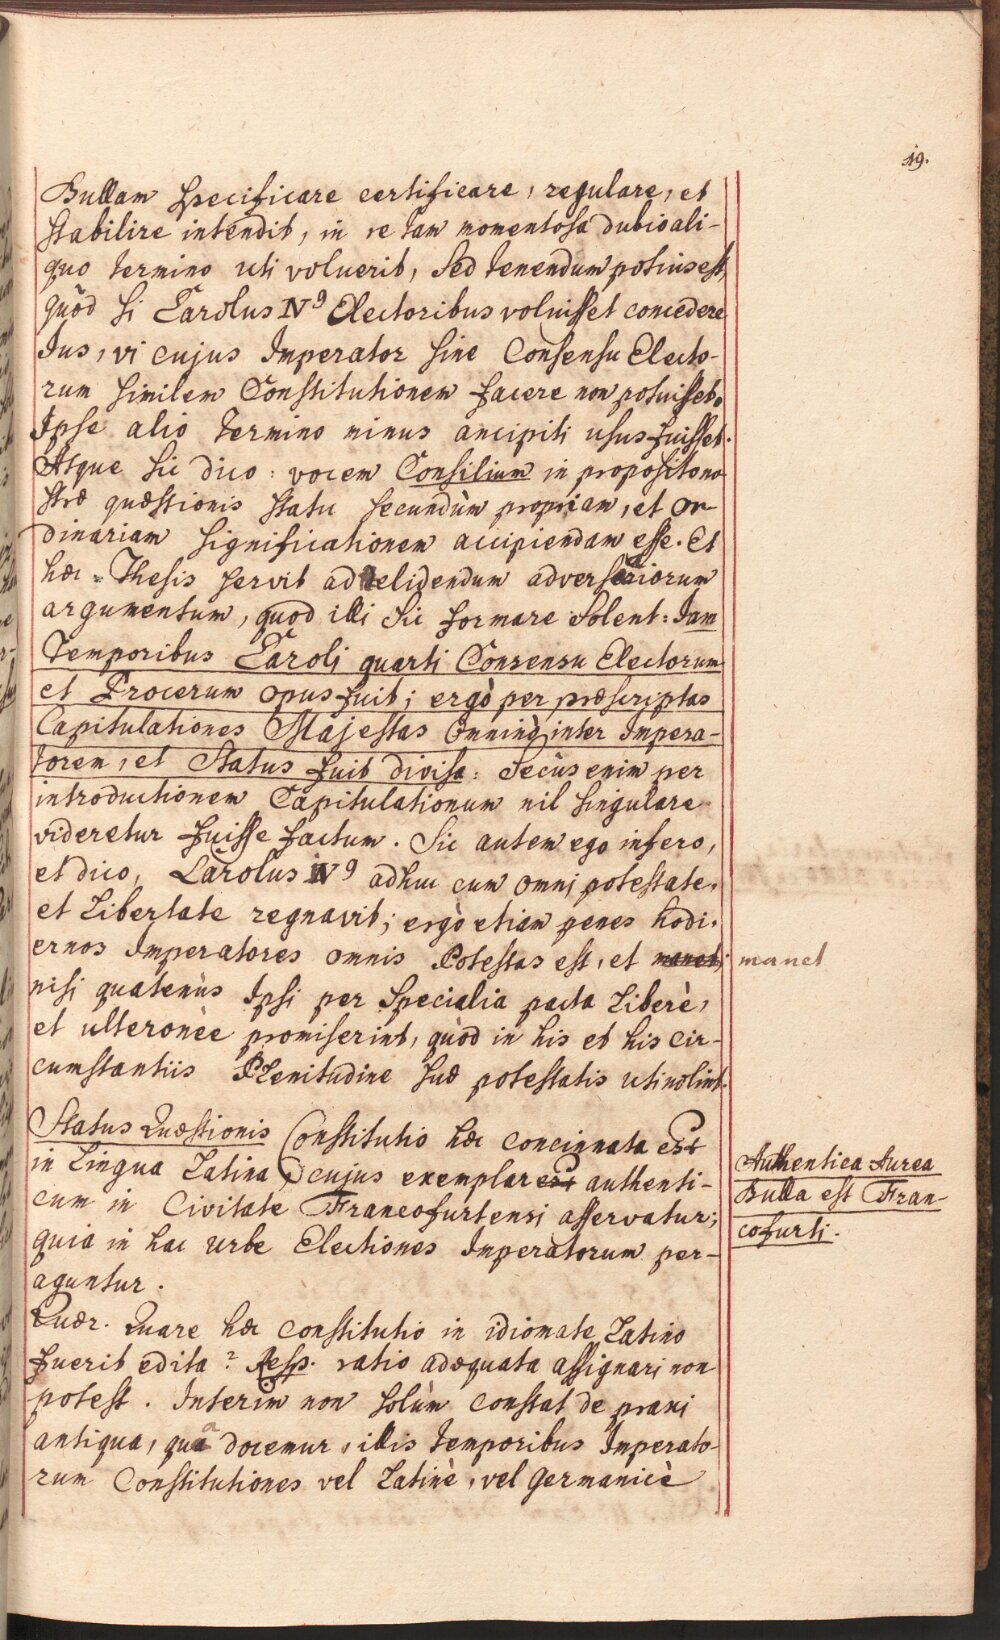 19.
Bullam specificare certificare, regulare, et
stabilire intendit, in re tam momentosa dubio ali-
quo termino uti voluerit, sed tenendum potius est,
quòd si Carolus IV9 Electoribus voluisset concedere
Jus, vi cujus Imperator sine Consensu Electo-
rum similem Constitutionem facere non potuisset.
Ipse alio termino minus ancipiti usus fuisset.
Atque sic dico: vocem Consilium in proposito no-
stræ quæstionis statu secundùm propriam, et or-
dinariam significationem accipiendam esse. Et
hæc Thesis servit ad elidendum adversariorum
argumentum, quod illi sic formare solent: Jam
Temporibus Caroli quarti Consensu Electorum
et Procerum opus fuit; ergò per præscriptas
Capitulationes Majestas omninò inter Impera-
torem, et Status fuit divisa: Secùs enim per
introductionem Capitulationum nil singulare
videretur fuisse factum. Sic autem ego infero,
et dico, Carolus IV9 adhuc cum omni potestate,
et Libertate regnavit; ergò etiam penes hodi-
ernos Imperatores omnis Potestas est, et manet; manet
nisi quatenùs Ipsi per specialia pacta Liberè,
et ulteronèe promiserint, quòd in his et his cir-
cumstantiis Plenitudine suæ potestatis uti nolint.
Status Quæstionis Constitutio hæc concinnata est
in Lingua Latina, cujus exemplar est authenti-
cum in Civitate Francofurtensi asservatur;
quia in hac Urbe Electiones Imperatorum per-
aguntur.
Authentica Aurea
Bulla est Fran-
cofurti.
Quær. Quare hæc constitutio in idiomate Latino
fuerit edita? Resp. ratio adæquata assignari non
potest. Interim non solùm constat de praxi
antiqua, qua docemur, illis temporibus Imperato-
rum Constitutiones vel Latinè, vel Germanicè